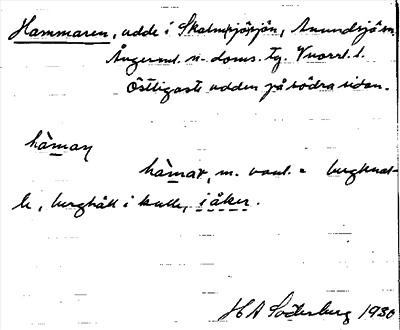 Hammaren, udde i Skalmsjösjön, Anundsjö sn.
Ångerml. n. doms. tg. Vnorrl. l.
Östligaste udden på södra sidan.
hàmaṇ
hàmar, m. vanl. = bergknal-
le, berghäll i kulle, i åker.
H A Söderberg 1930